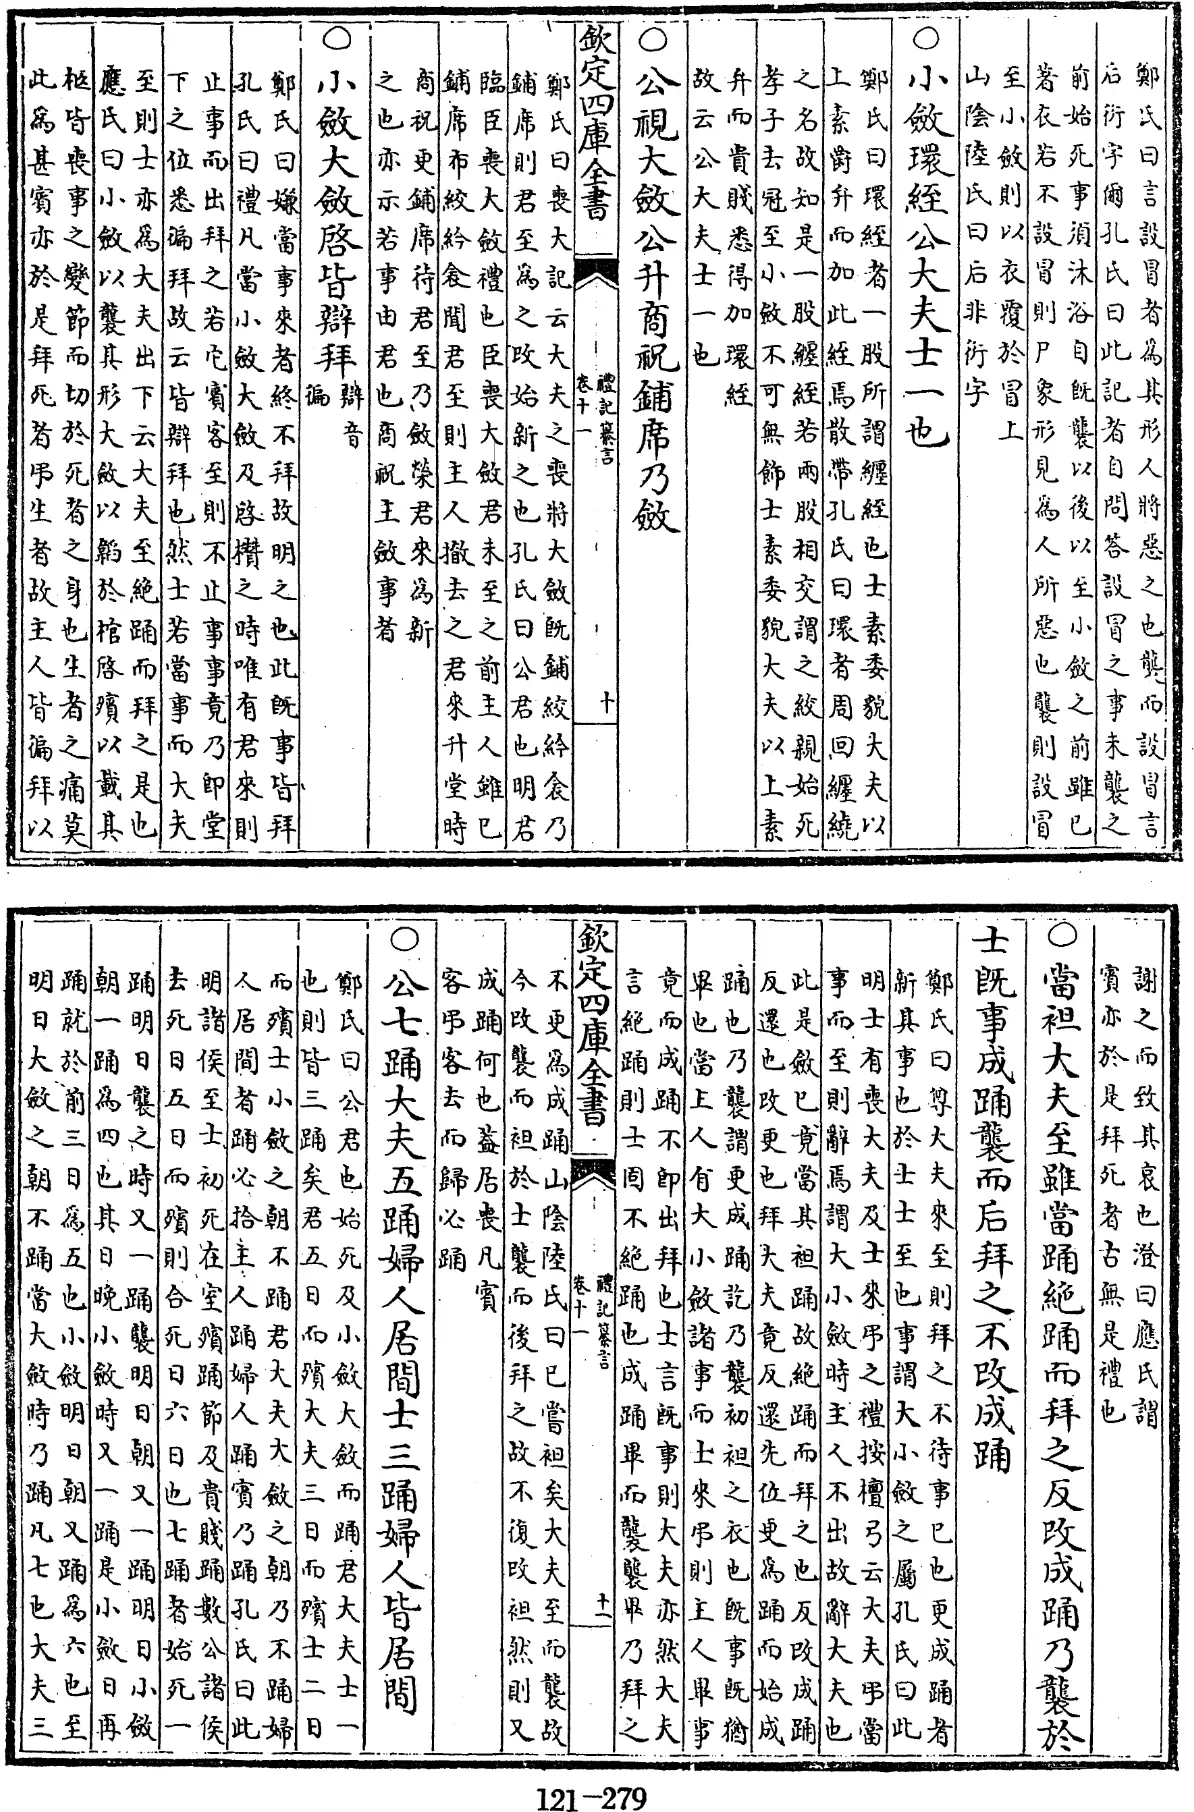 鄭氏曰言設冒者為其形人將惡之也襲而設冒言
后衍字爾孔氏曰此記者自問答設冒之事未襲之
前始死事須沐浴自既襲以後以至小斂之前雖已
著衣若不設冒則尸象形見為人所惡也襲則設冒
至小斂則以衣覆於冒上
山陰陸氏曰后非衍字
○小斂環絰公大夫士一也
鄭氏曰環絰者一股所謂纏絰也士素委貌大夫以
上素爵弁而加此絰焉散帶孔氏曰環者周回纏繞
之名故知是一股纏絰若兩股相交謂之絞親始死
孝子去冠至小斂不可無飾士素委貌大夫以上素
弁而貴賤悉得加環絰
故云公大夫士一也
○公視大斂公升商祝鋪席乃斂
欽定四庫全書
禮記纂言
卷十一
十
鄭氏曰喪大記云大夫之喪將大斂既鋪絞紟衾乃
鋪席則君至為之改始新之也孔氏曰公君也明君
臨臣喪大斂禮也臣喪大斂君未至之前主人雖已
鋪席布絞紟衾聞君至則主人撤去之君來升堂時
商祝更鋪席待君至乃斂榮君來為新
之也亦示若事由君也商祝主斂事者
○小斂大斂啓皆辯拜
辯音
徧
鄭氏曰嫌當事來者終不拜故明之也此既事皆拜
孔氏曰禮凡當小斂大斂及啓攢之時唯有君來則
止事而出拜之若它賓客至則不止事事竟乃即堂
下之位悉徧拜故云皆辯拜也然士若當事而大夫
至則士亦為大夫出下云大夫至絶踊而拜之是也
應氏曰小斂以襲其形大斂以韜於棺啓殯以載其
柩皆喪事之變節而切於死者之身也生者之痛莫
此為甚賓亦於是拜死者弔生者故主人皆徧拜以
謝之而致其哀也澄曰應氏謂
賓亦於是拜死者古無是禮也
○當袒大夫至雖當踊絶踊而拜之反改成踊乃襲於
士既事成踊襲而后拜之不改成踊
鄭氏曰尊大夫來至則拜之不待事已也更成踊者
新其事也於士士至也事謂大小斂之屬孔氏曰此
明士有喪大夫及士來弔之禮按檀弓云大夫弔當
事而至則辭焉謂大小斂時主人不出故辭大夫也
此是斂已竟當其袒踊故絶踊而拜之也反改成踊
反還也改更也拜大夫竟反還先位更為踊而始成
踊也乃襲謂更成踊訖乃襲初袒之衣也既事既猶
畢也當主人有大小斂諸事而士來弔則主人畢事
竟而成踊不即出拜也士言既事則大夫亦然大夫
言絶踊則士固不絶踊也成踊畢而襲襲畢乃拜之
欽定四庫全書
禮記纂言
卷十一
十一
不更為成踊山陰陸氏曰已嘗袒矣大夫至而襲故
今改襲而袒於士襲而後拜之故不復改袒然則又
成踊何也蓋居喪凡賓
客弔客去而歸必踊
○公七踊大夫五踊婦人居間士三踊婦人皆居間
鄭氏曰公君也始死及小斂大斂而踊君大夫士一
也則皆三踊矣君五日而殯大夫三日而殯士二日
而殯士小斂之朝不踊君大夫大斂之朝乃不踊婦
人居間者踊必拾主人踊婦人踊賓乃踊孔氏曰此
明諸侯至士初死在室殯踊節及貴賤踊數公諸侯
去死日五日而殯則合死日六日也七踊者始死一
踊明日襲之時又一踊襲明日朝又一踊明日小斂
朝一踊為四也其日晚小斂時又一踊是小斂日再
踊就於前三日為五也小斂明日朝又踊為六也至
明日大斂之朝不踊當大斂時乃踊凡七也大夫三
121—279